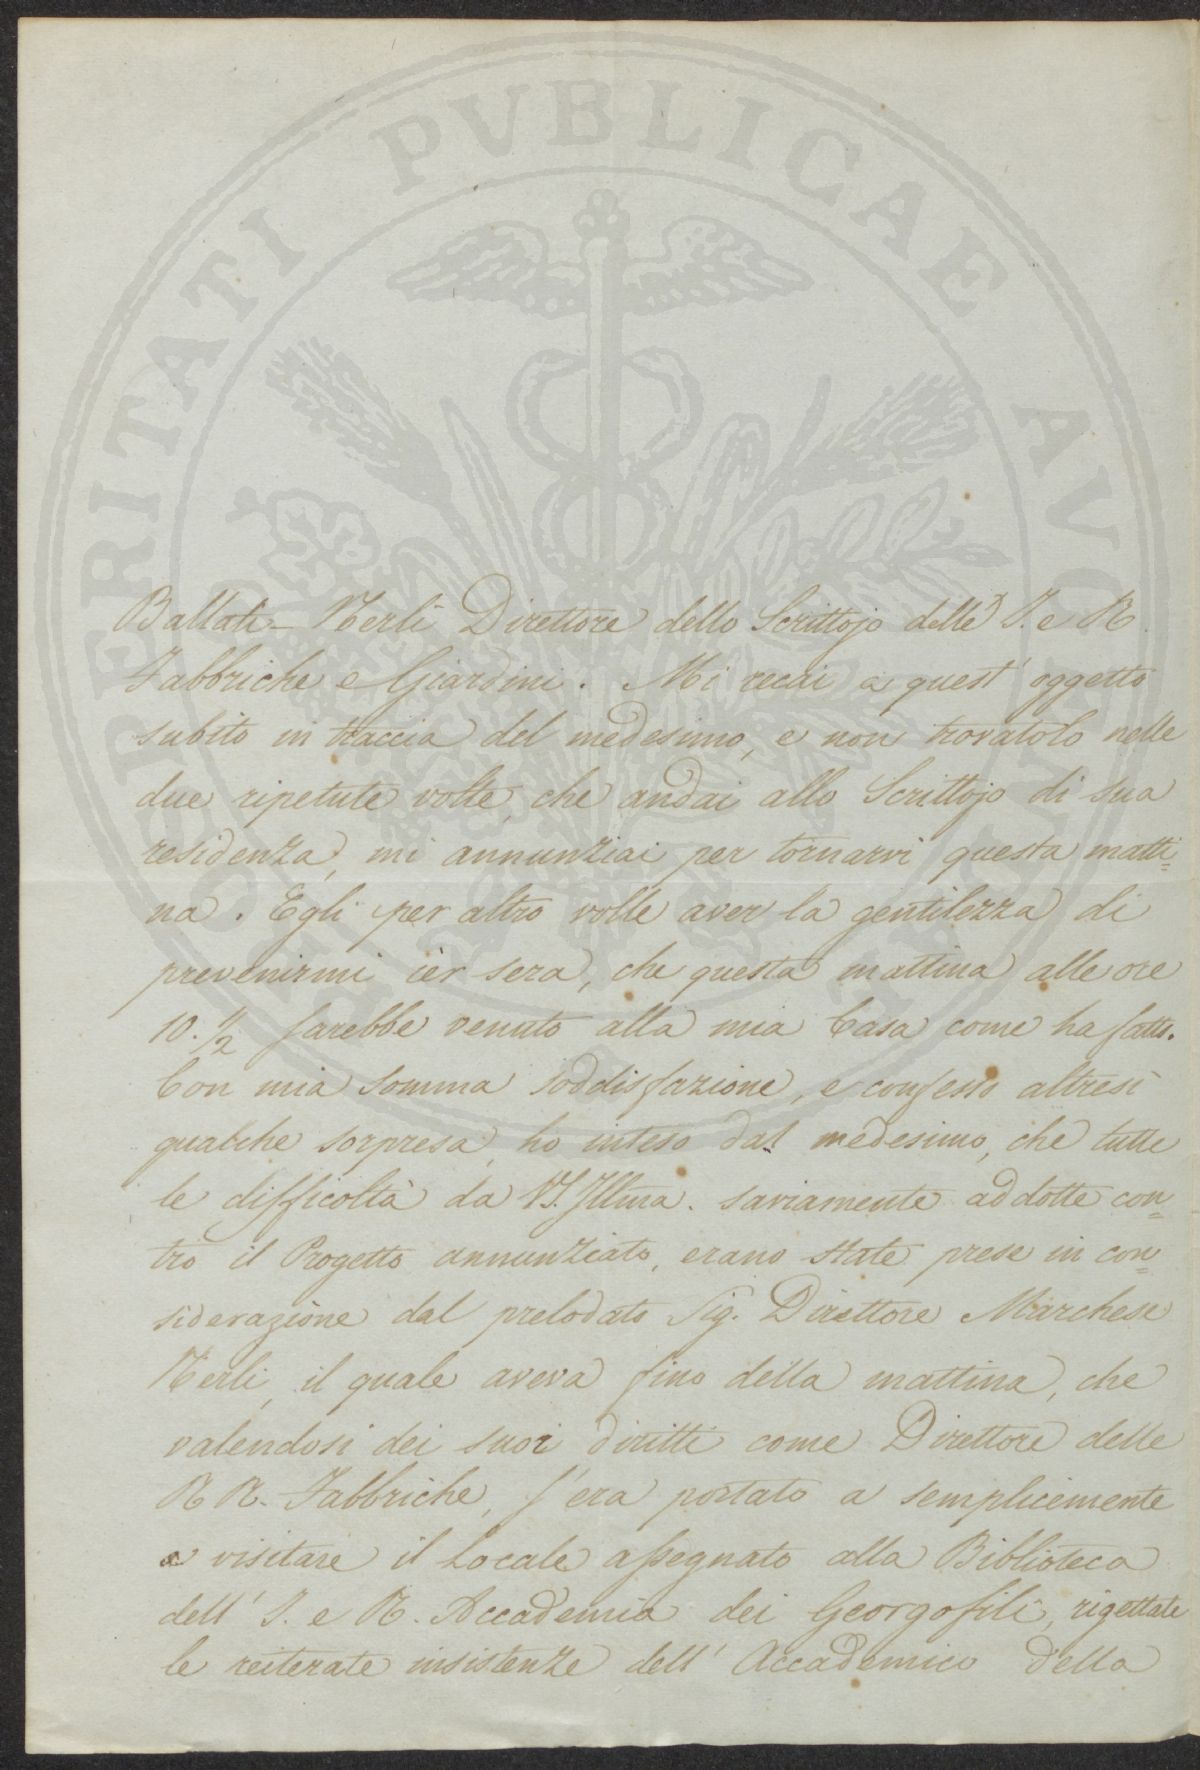 PROSPERITATI PUBLICAE AUGENDAE
Ballati-Nerli Direttore dello Scrittojo delle I. e R.
Fabbriche e Giardini. Mi recai a quest' oggetto
subito in traccia del medesimo, e non trovatolo nelle
due ripetute volte, che andai allo Scrittojo di sua
residenza, mi annunziai per tornarvi questa matti=
na. Egli per altro volle aver la gentilezza di
prevenirmi ier sera, che questa mattina alle ore
10. 1/2 sarebbe venuto alla mia Casa come ha fatto.
Con mia somma soddisfazione, e confesso altresì
qualche sorpresa, ho inteso dal medesimo, che tutte
le difficoltà da VS. Illma. saviamente addotte con=
tro il Progetto annunziato, erano state prese in con=
siderazione dal prelodato Sig. Direttore Marchese
Nerli, il quale aveva fino della mattina, che
valendosi dei suoi diritti come Direttore delle
R R. Fabbriche, s'era portato a semplicemente
a visitare il Locale assegnato alla Biblioteca
dell' I. e R. Accademia dei Georgofili, rigettate
le reiterate insistenze dell' Accademico della